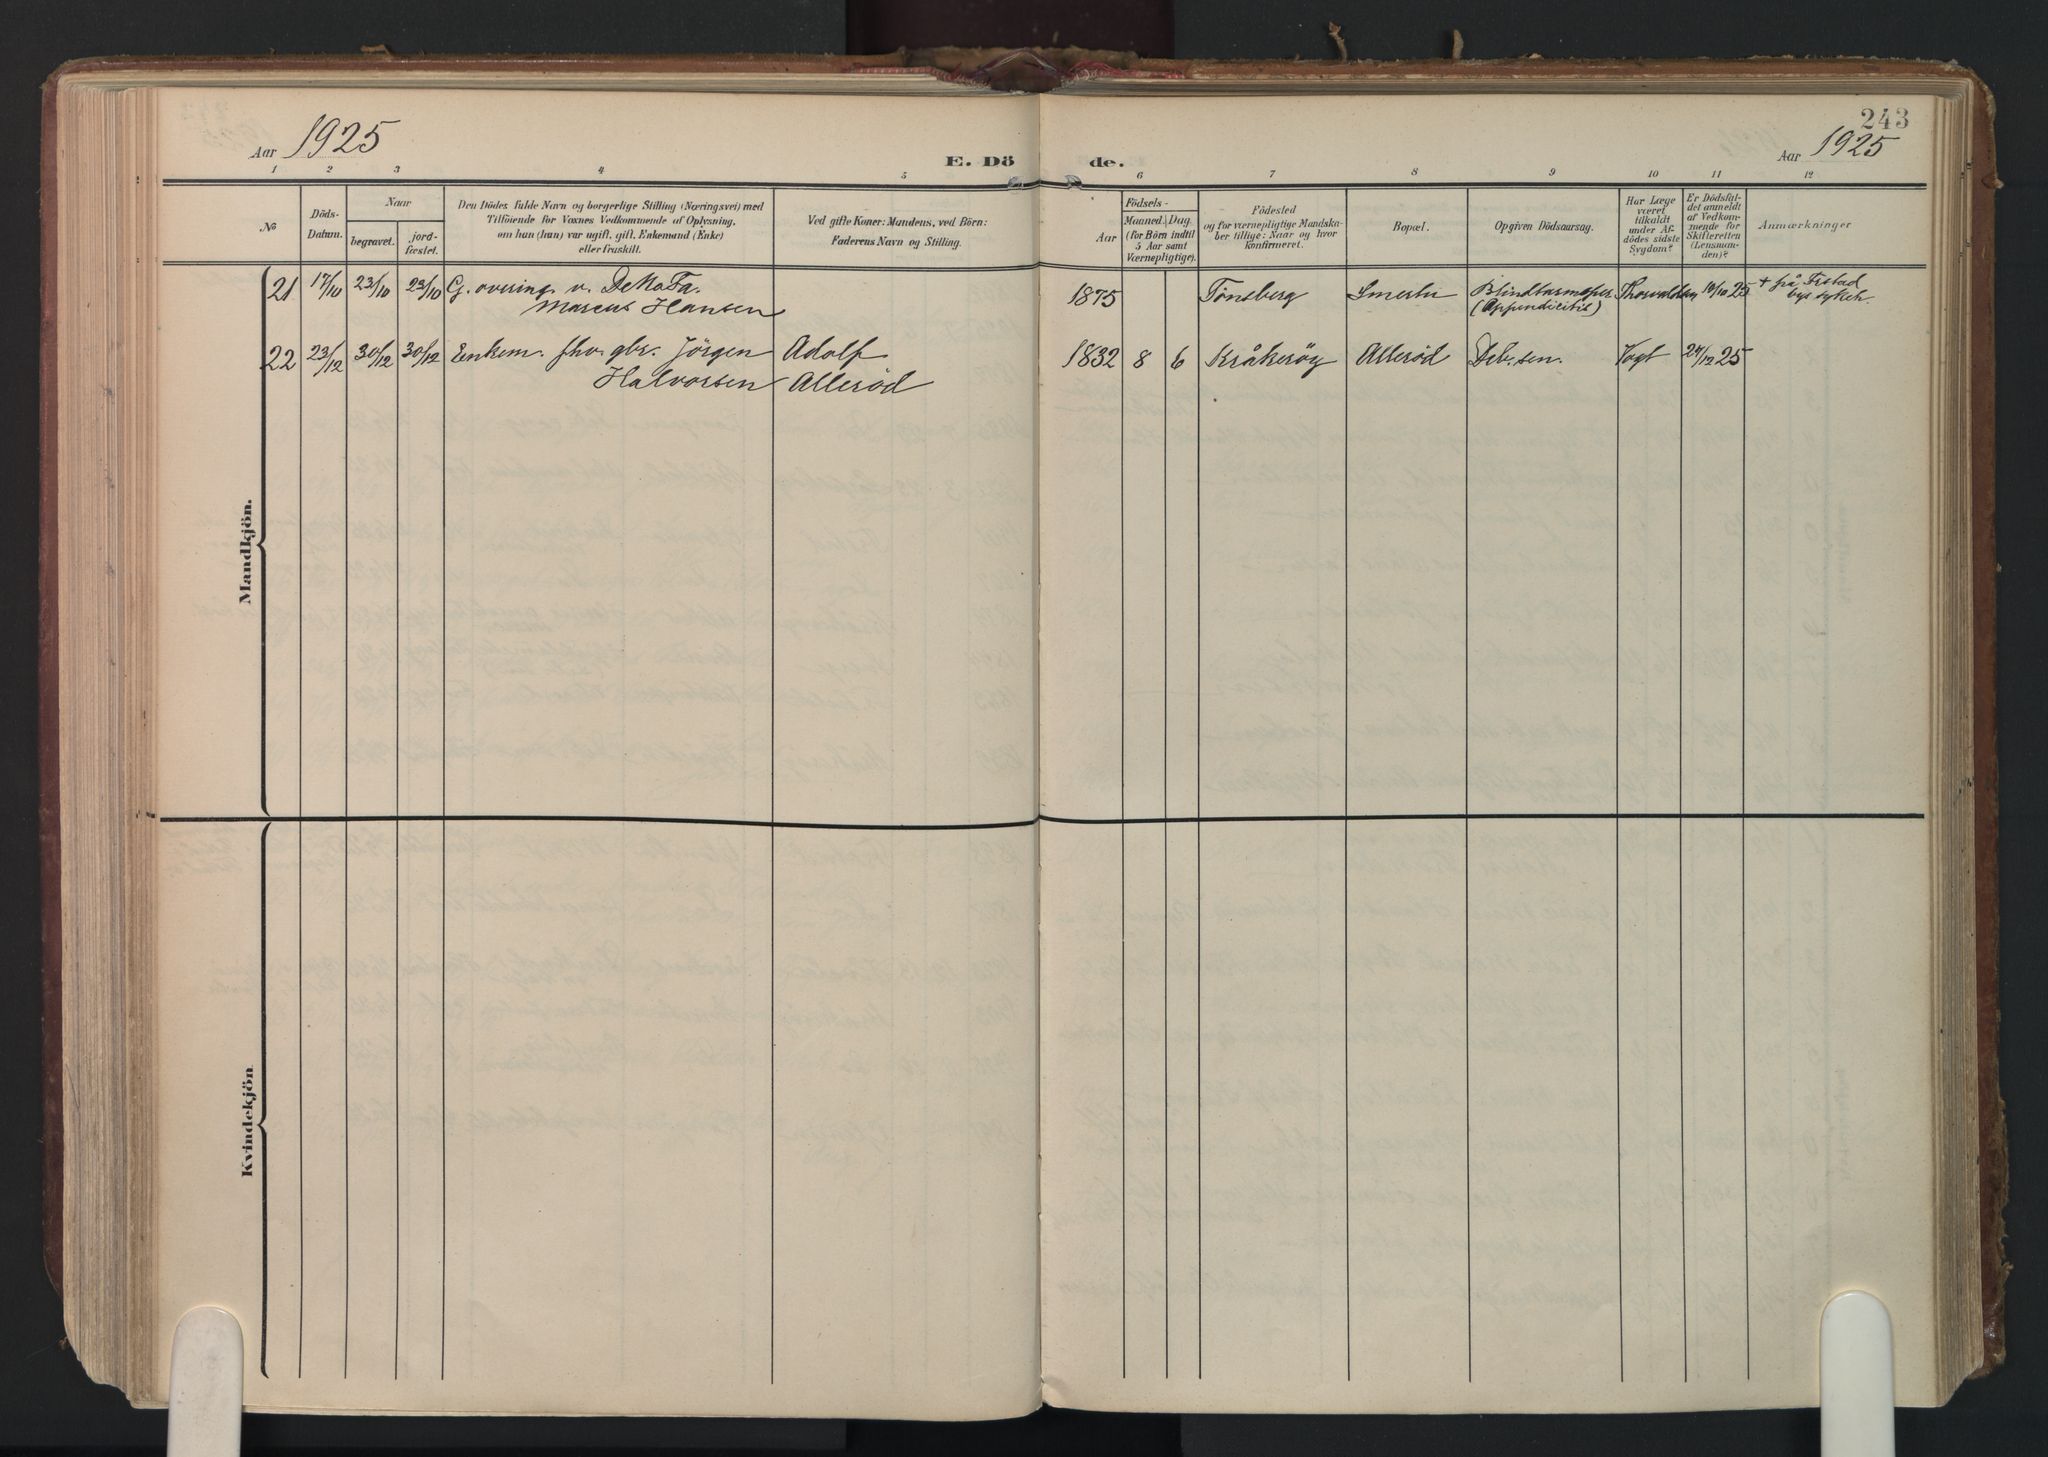 243
Aar 1925
E. Dö de.
Aar 1925
1 2 3 4 5 6 7 8 9 10 11 12
No
Döds-
Datum.
Naar
begravet.
jord-
fæstet.
Den Dödes fulde Navn og borgerlige Stilling (Næringsvei) med
Tilföiende for Voxnes Vedkommende af Oplysning,
om han (hun) var ugift, gift, Enkemand (Enke)
eller fraskilt.
Ved gifte Koner: Mandens, ved Börn:
Faderens Navn og Stilling.
Födsels-
Aar
Maaned. Dag.
(for Börn indtil
5 Aar samt
Værnepligtige).
Födested
og for værnepligtige Mandska-
ber tillige: Naar og hvor
konfirmeret.
Bopæl.
Opgiven Dödsaarsag.
Har Læge
været
tilkaldt
under Af-
dödes sidste
Sygdom?
Er Dödsfal-
det anmeldt
af Vedkom-
mende for
Skifteretten
(Lensman-
den)?
Anmærkninger
Mandkjön.
21 17/10 23/10 23/10 G. overing. v. DeNoFa. 1875 Tönsberg
Marcus Hansen (Appendicitis)
+ på Frstad
bys sykeh.
22 23/12 30/12 30/12 Enkem. fhv. gbr. Jörgen Adolf 1832 8 6 Kråkeröy Alleröd Deb. sen. Vogt 24/12 25
Halvorsen Alleröd
Kvindekjön